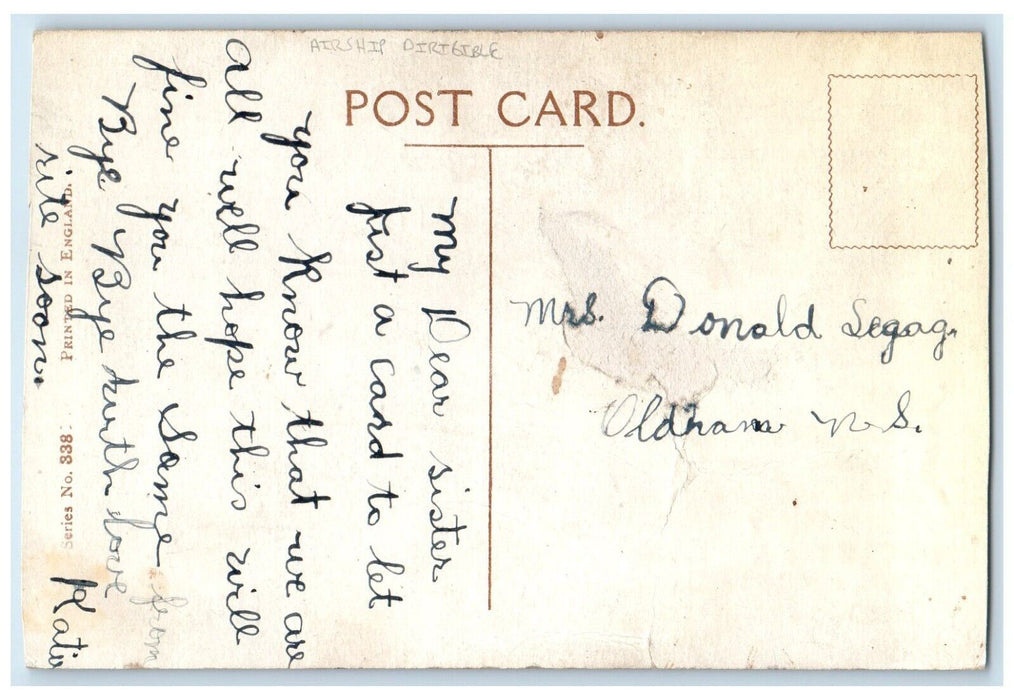 AIRSHIP DIRIGIBLE
POST CARD.
My Dear sister
Just a card to let
you know that we are
all well hope this will
fine you the same
Bye Bye with love from
rite soon. Katie
PRINTED IN ENGLAND.
Series No. 338.
Mrs. Donald
Oldham N.S.